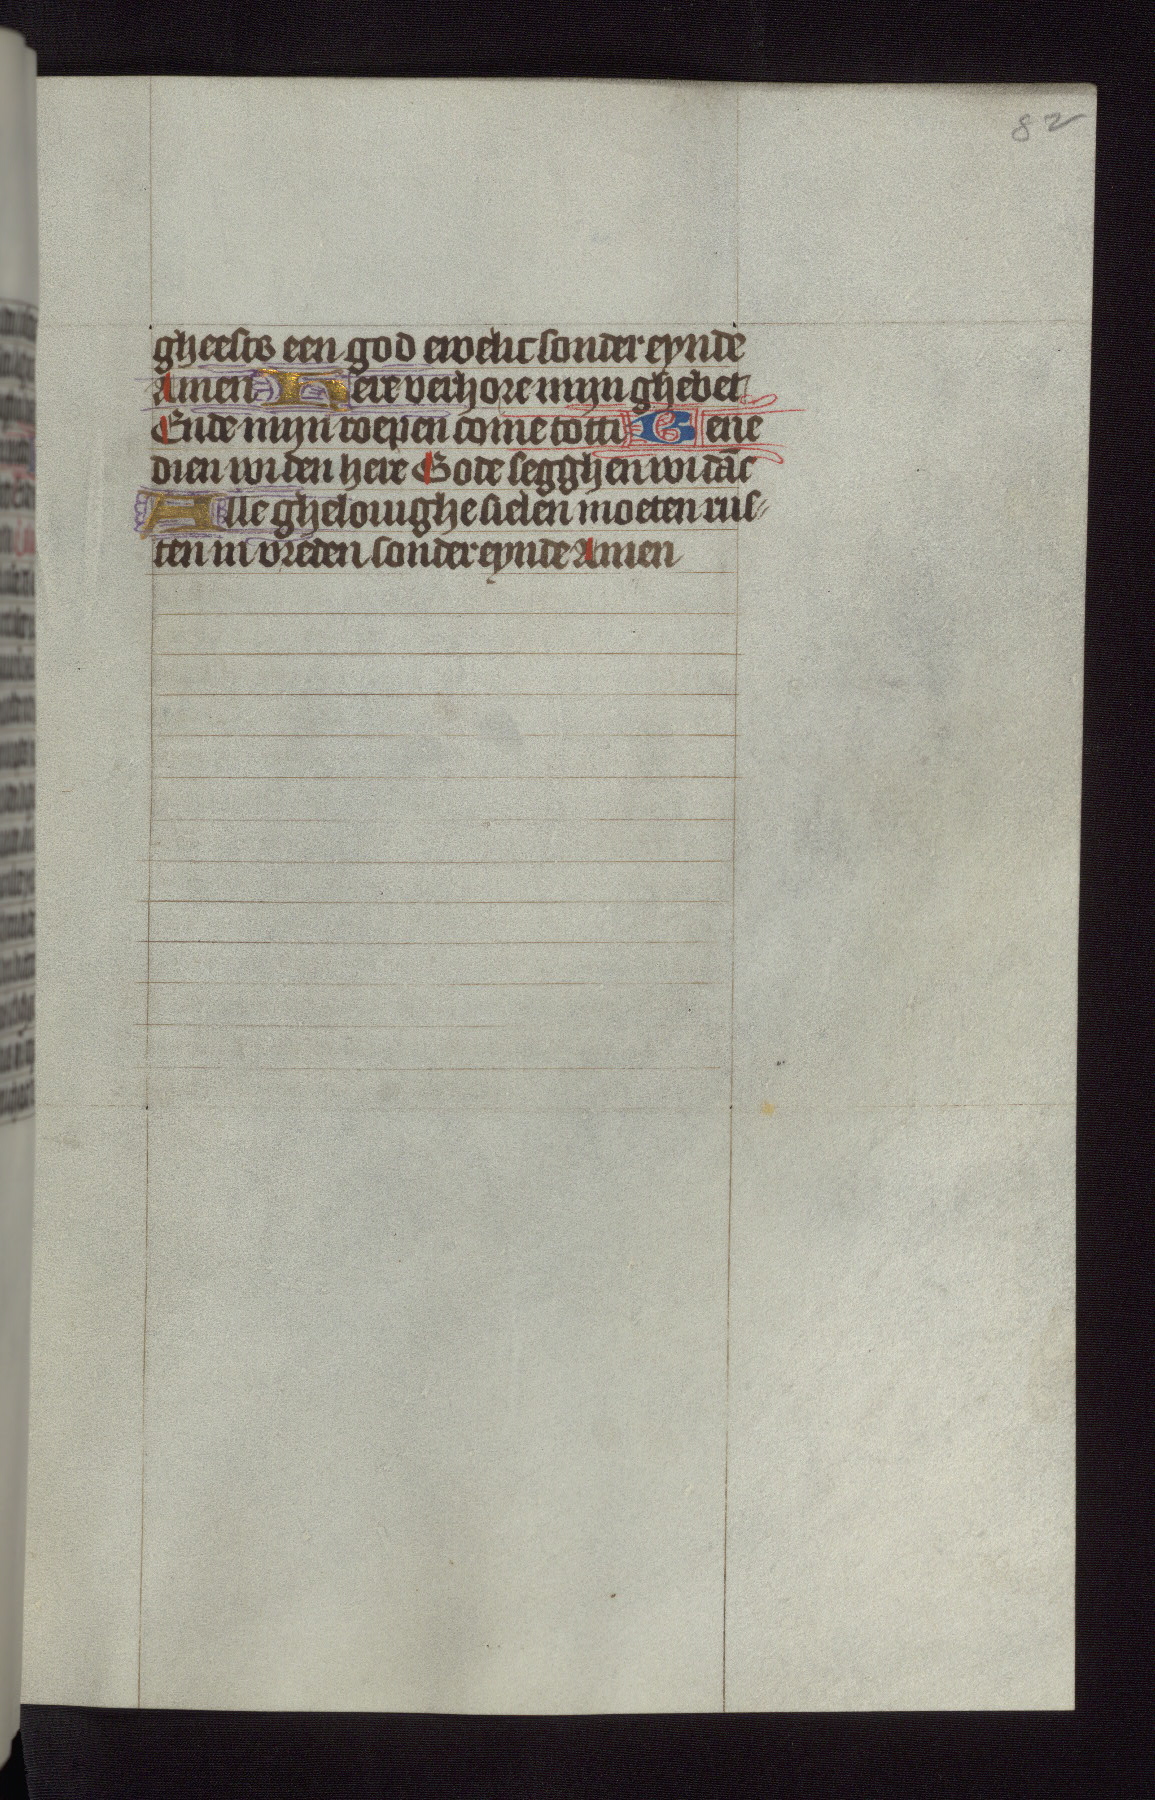 82
gheests een god ewelic sonder eynde
Amen Here verhore mijn ghebet
Ende mijn roepen come totti Bene
dien wi den here Gode segghen wi dāc
Alle ghelovighe sielen moeten rus-
ten in vreden sonder eynde Amen